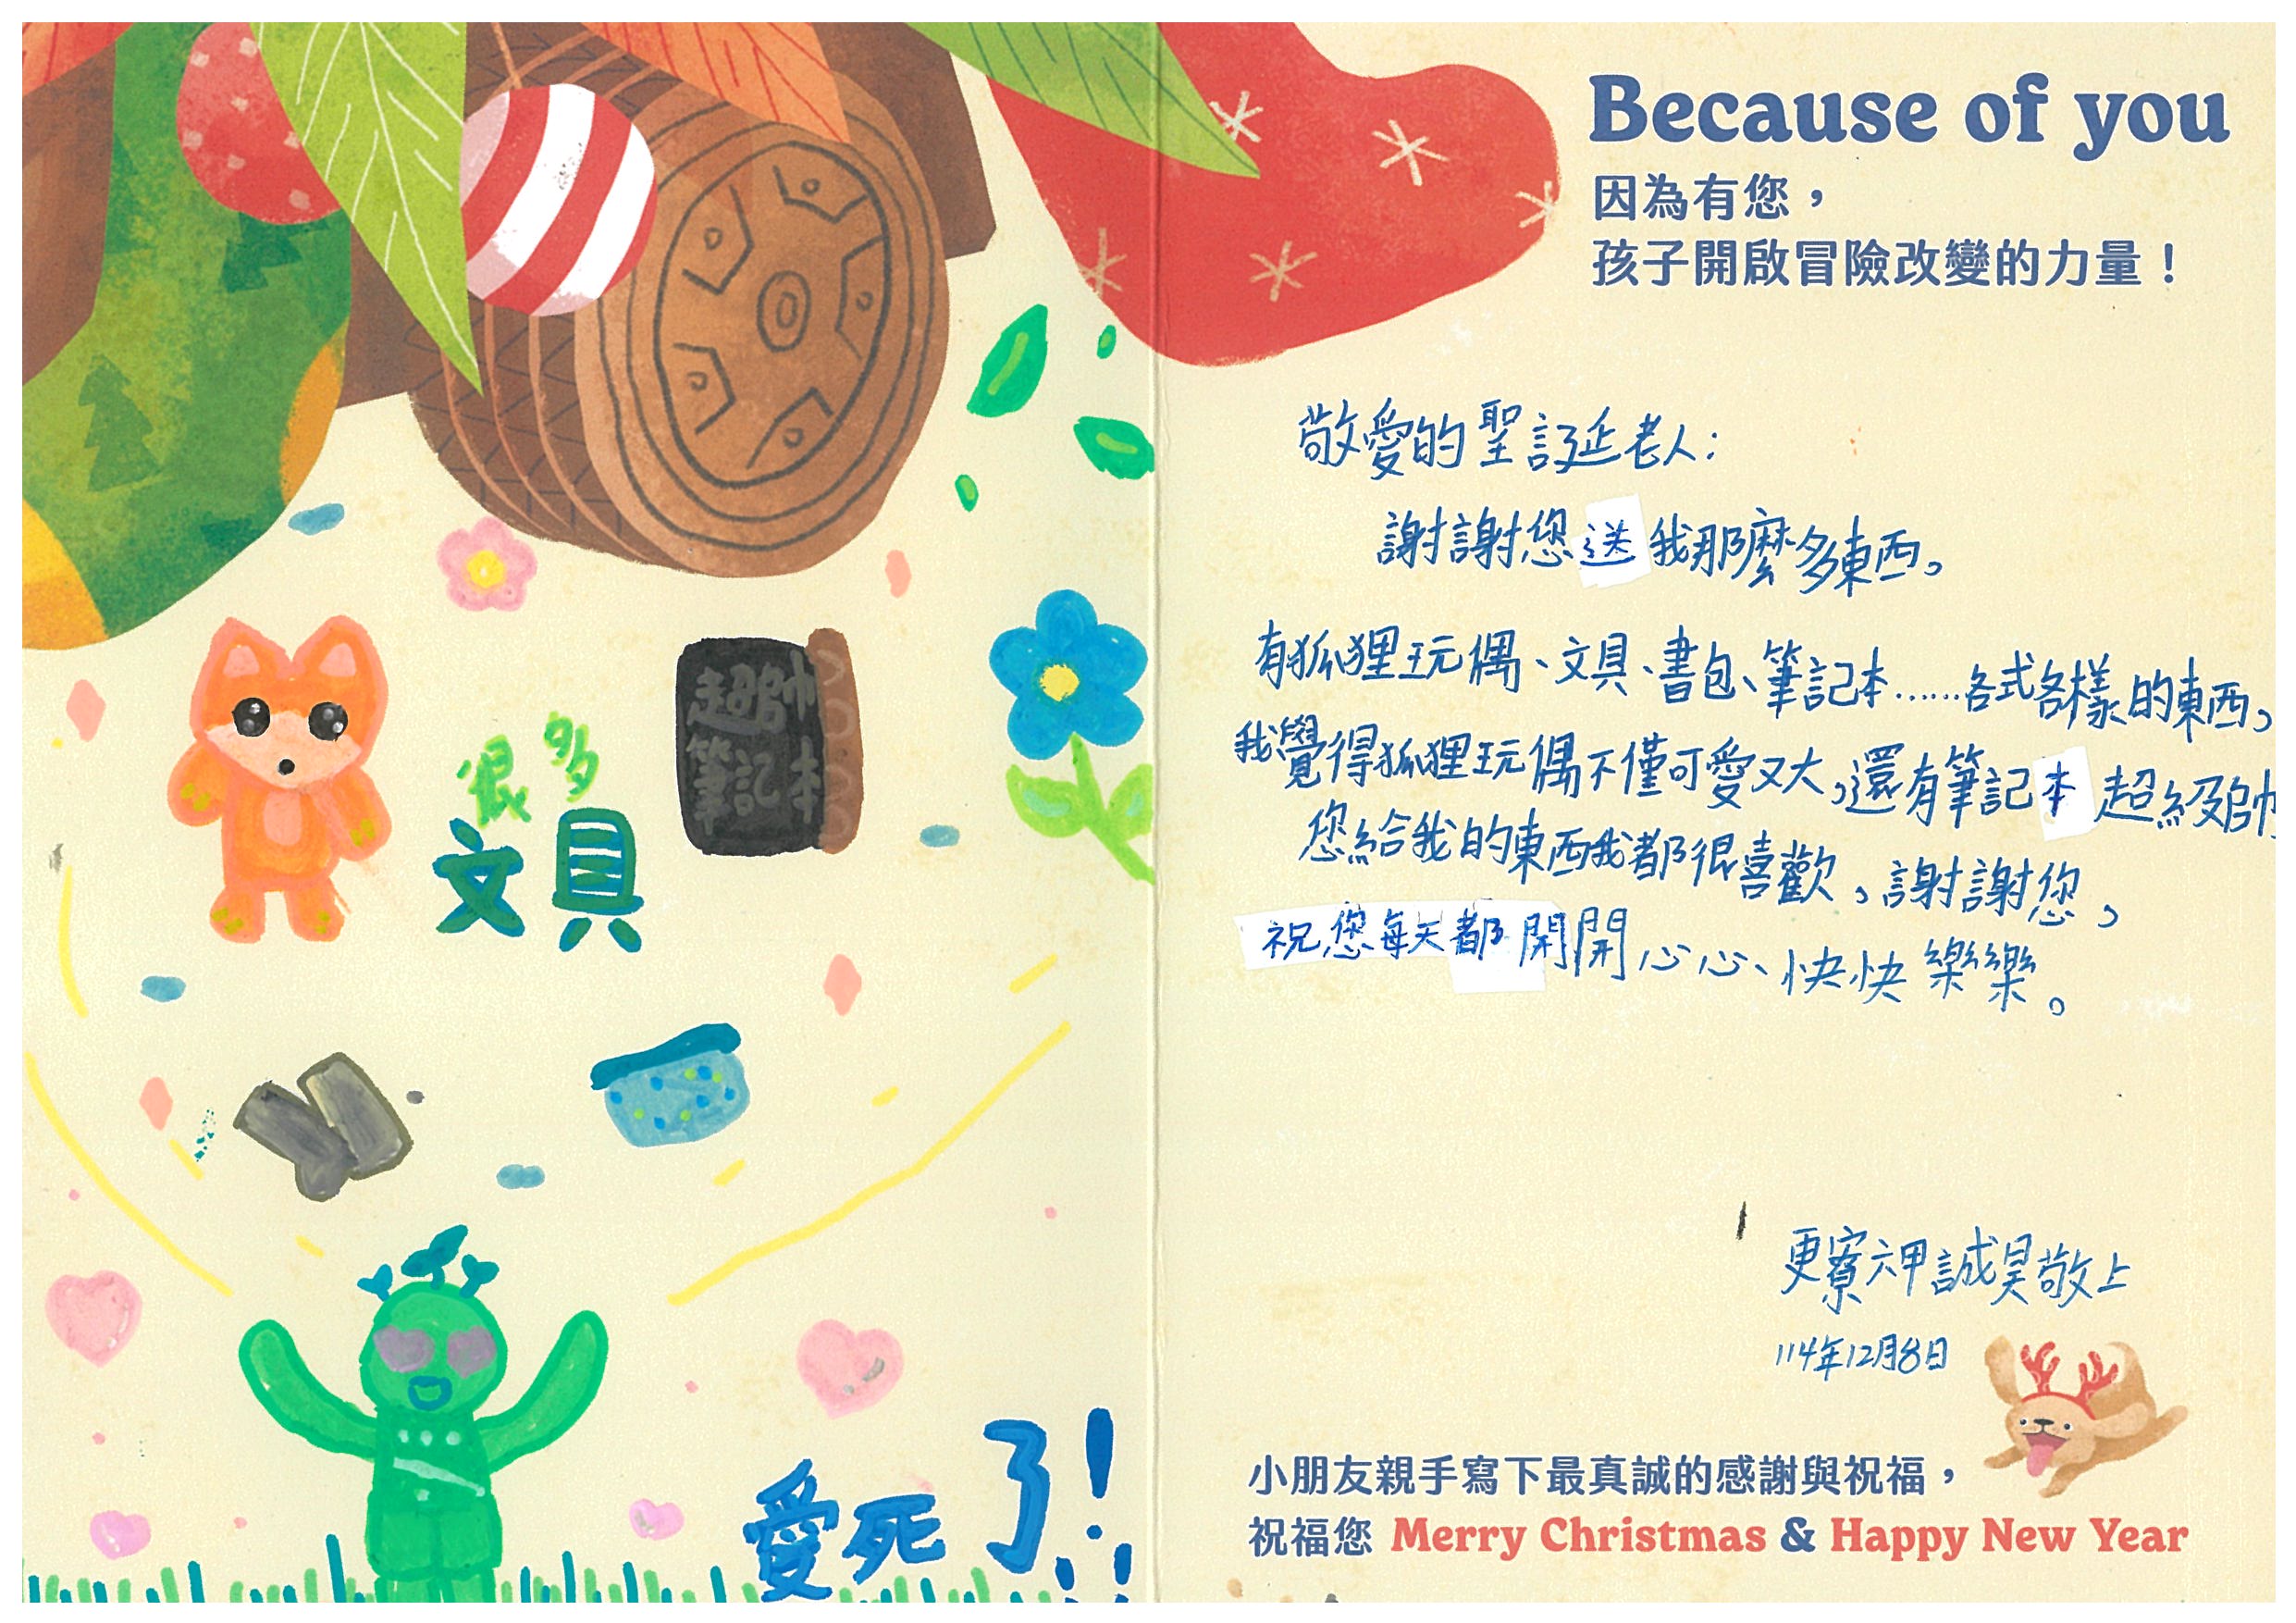 Because of you
因為有您，
孩子開啟冒險改變的力量！
敬愛的聖誕老人：
謝謝您送我那麼多東西。
有狐狸玩偶、文具、書包、筆記本……各式各樣的東西，
我覺得狐狸玩偶不僅可愛又大，還有筆記本超級帥
您給我的東西我都很喜歡，謝謝您，
祝您每天都開開心心、快快樂樂。
更寮六甲誠昊敬上
114年12月8日
小朋友親手寫下最真誠的感謝與祝福，
祝福您 Merry Christmas & Happy New Year
超帥
筆記本
很多
文具
愛死了！